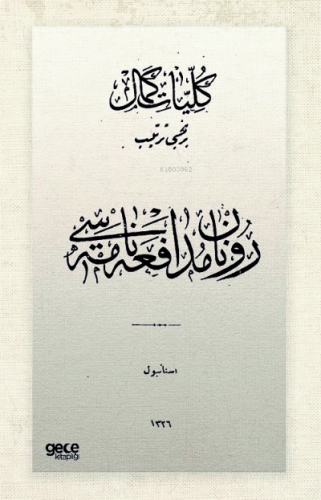 كلیات كمال
برنجی ترتیب
رونان مدافعه نامه‌سی
استانبول
١٣٢٦
gece
kitaplığı